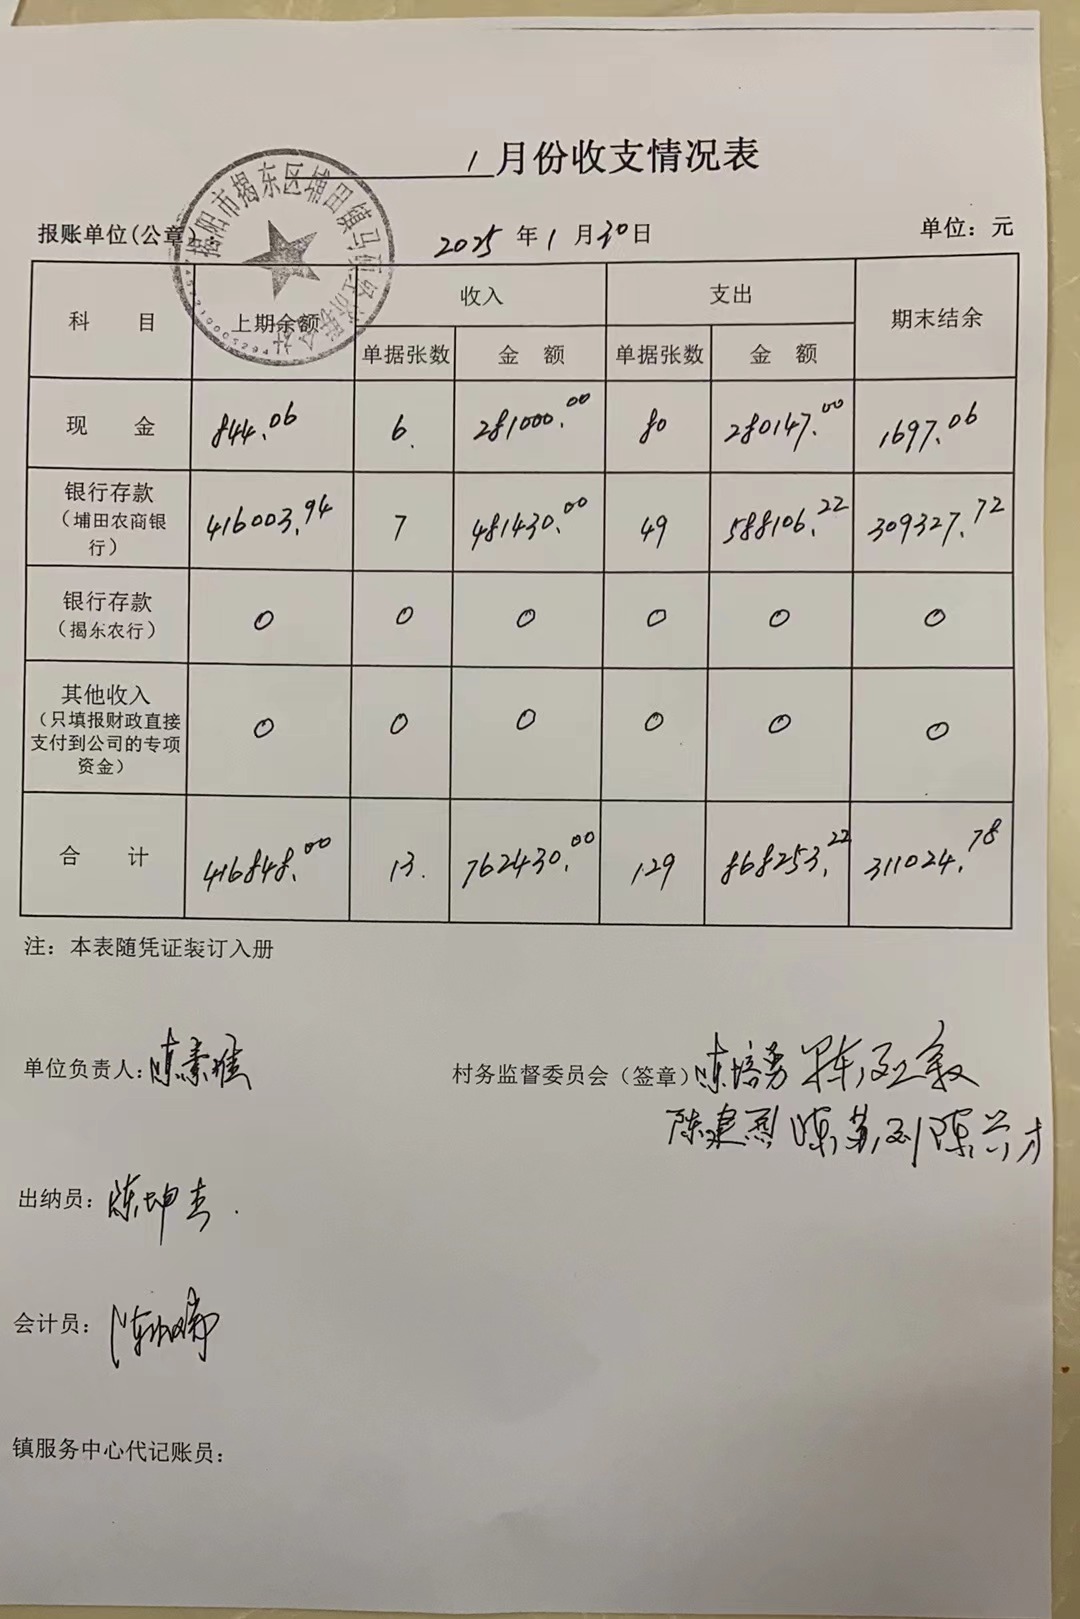 1 月份收支情况表
揭阳市揭东区埔田镇马硕经济联合社
报账单位(公章)： 2025 年 1 月 30 日 单位：元
科 目 上期余额 收入 支出 期末结余
单据张数 金 额 单据张数 金 额
现 金 844.06 6. 281000.00 80 280147.00 1697.06
银行存款
（埔田农商银
行） 416003.94 7 481430.00 49 588106.22 309327.72
银行存款
（揭东农行） 0 0 0 0 0 0
其他收入
（只填报财政直接
支付到公司的专项
资金） 0 0 0 0 0 0
合 计 416848.00 13. 762430.00 129 868253.22 311024.78
注：本表随凭证装订入册
单位负责人： 村务监督委员会（签章） 陈培勇
陈建烈
出纳员：陈坤杰.
会计员：
镇服务中心代记账员：